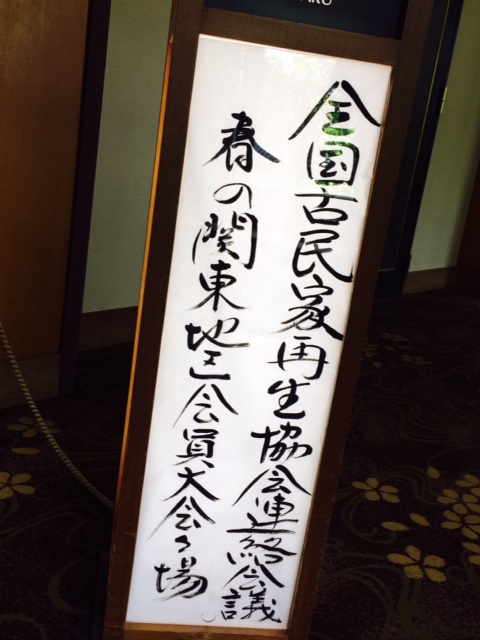 全国古民家再生協会連絡会議
春の関東地区会員大会会場